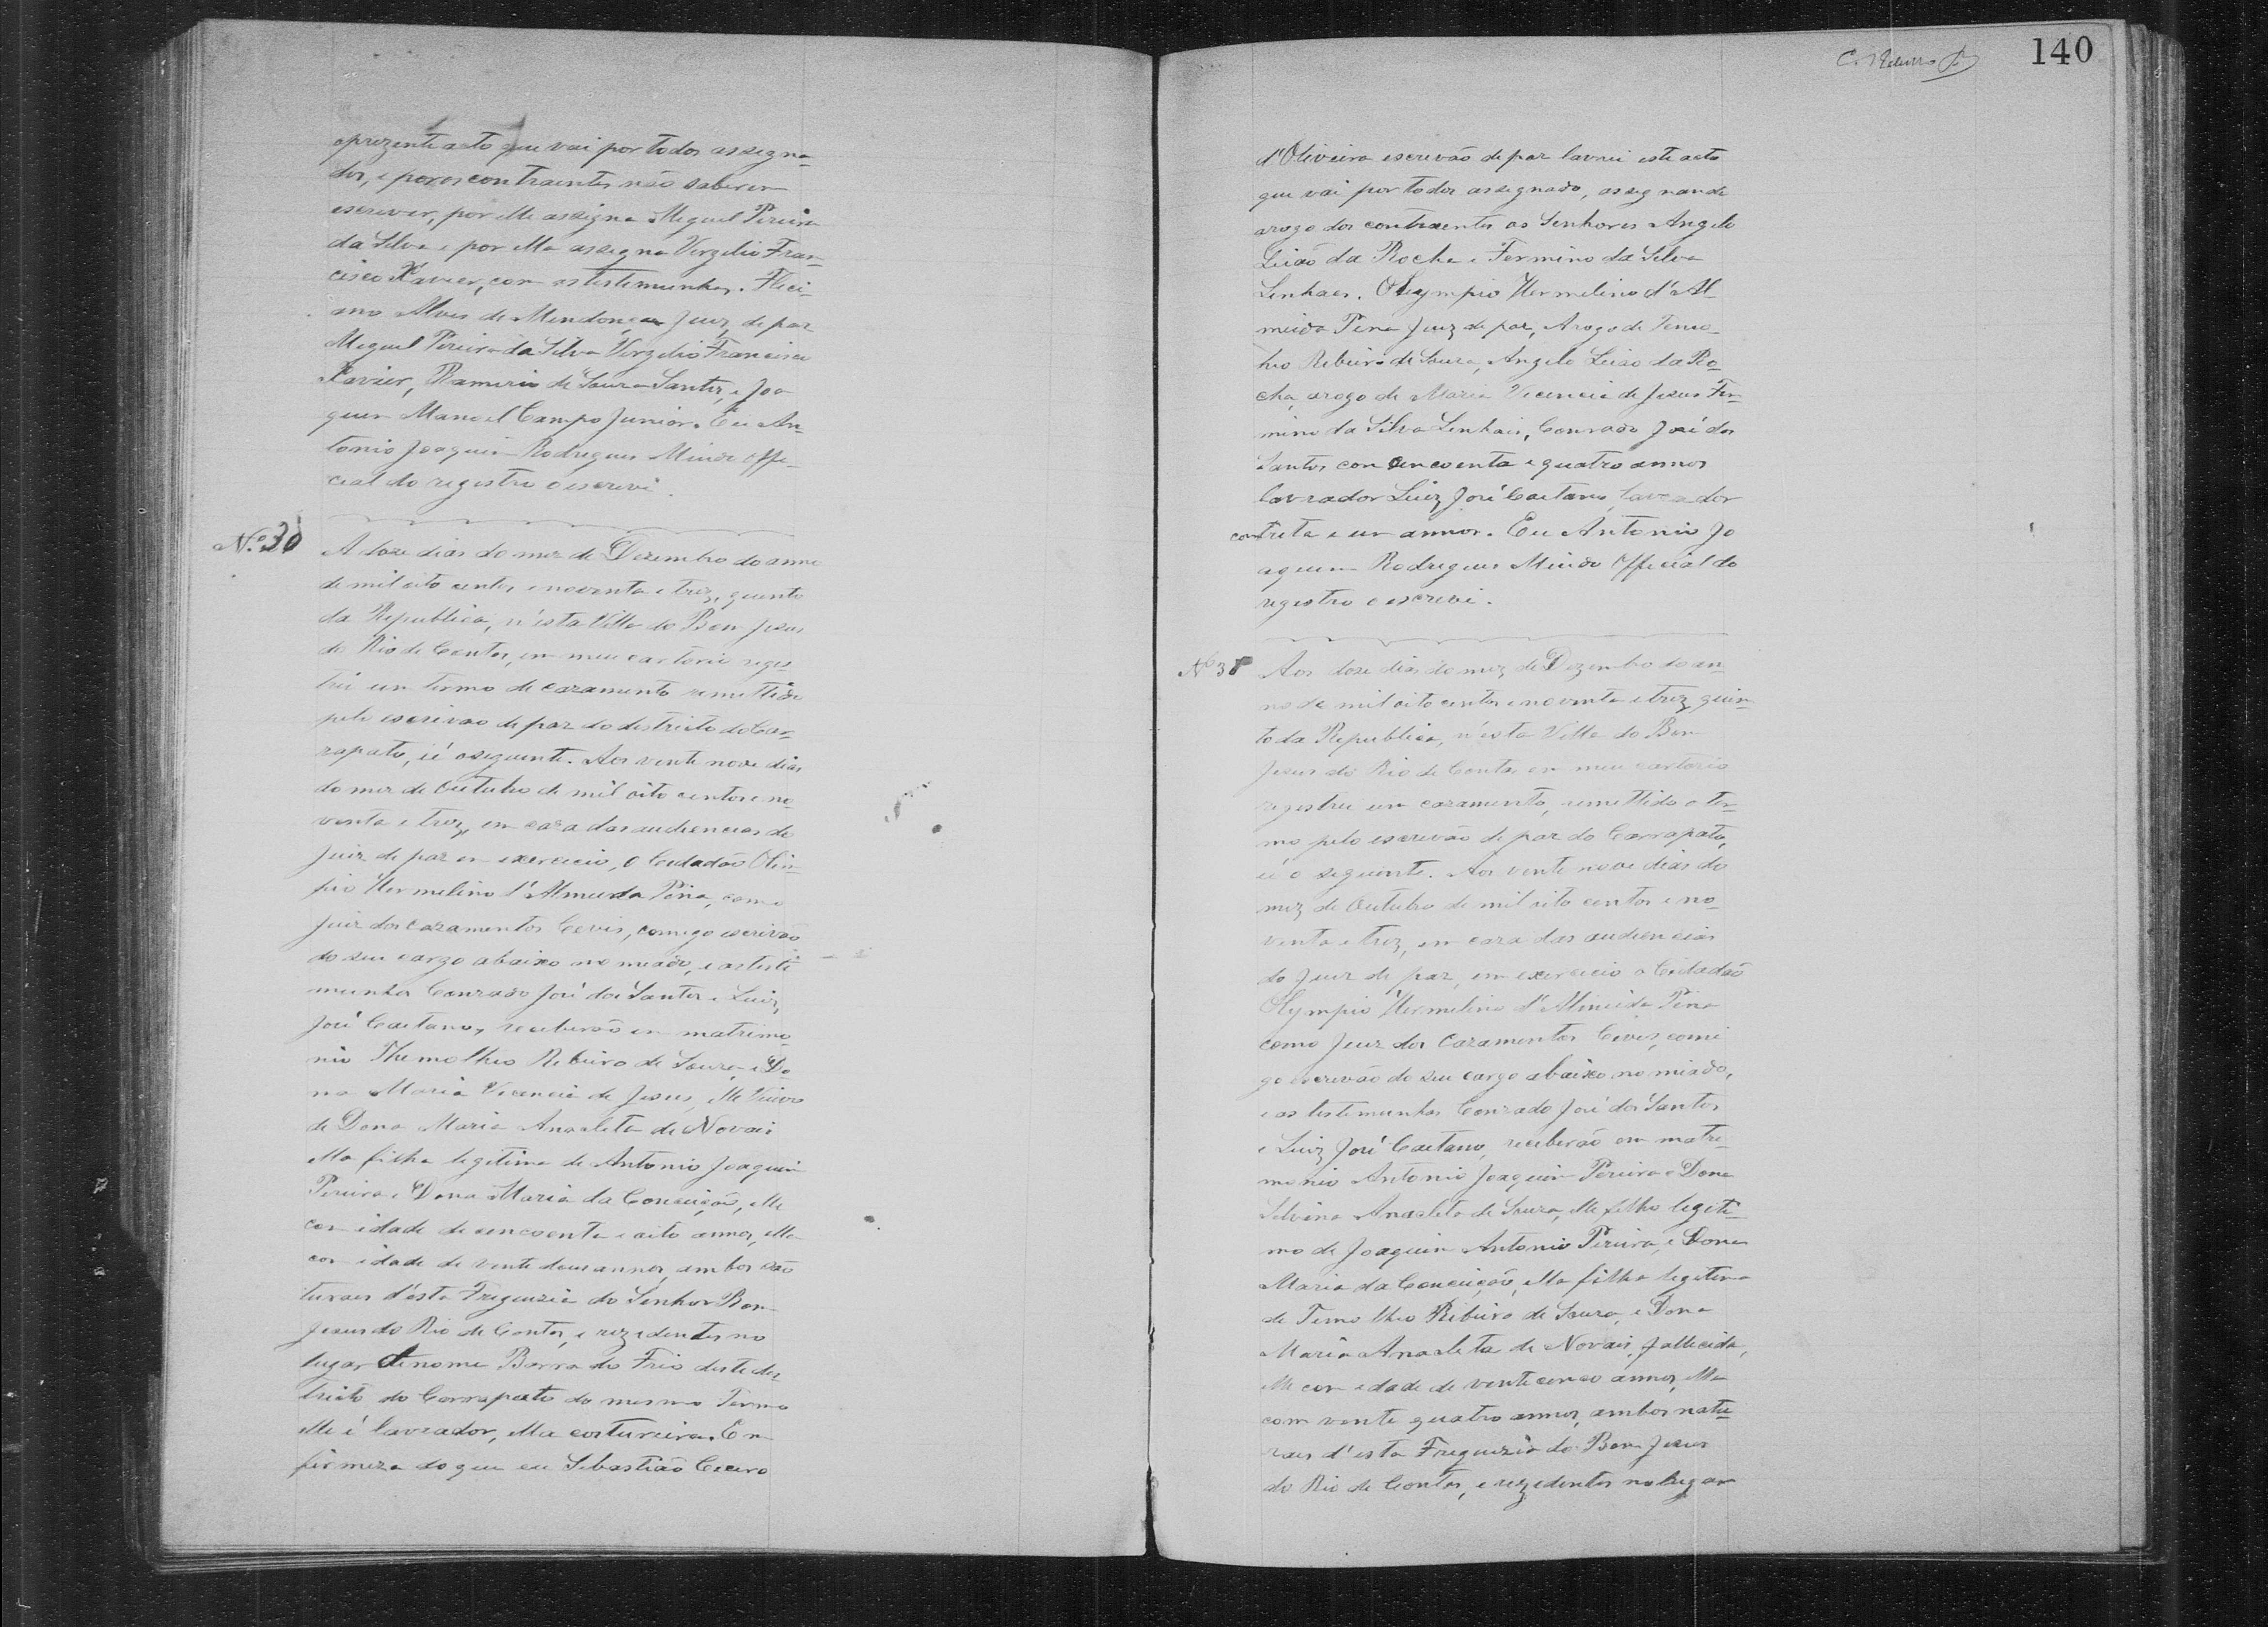 oprezente acto que vai por todos assigna-
dos, e por os contraentes não saberem
escrever, por elle assigna Miguel Pereira
da Silva e por ella assigna Virgilio Fran-
cisco Xavier, com as testemunhas.
Alves de Mendonça Juiz de paz
Miguel Pereira da Silva Virgilio Francisco
Xavier, Ramerio de Souza Santos, e Joa
quim Manoel Campo Junior. Eu An-
tonio Joaquim Rodrigues Mindo offi-
cial do registro o escrevi.
N.º 30
A doze dias do mez de Dezembro do anno
de mil oito centos e noventa e trez, quinto
da Republica, n'esta Villa do Bom Jesus
do Rio de Contas, em meu cartorio regis-
trei um termo de cazamento remettido
pelo escrivão de paz do destricto do Car-
rapato, é o seguinte. Aos vente nove dias
do mez de Outubro de mil oito centos e no-
venta e trez, em caza das audiencias do
Juiz de paz em exercicio, o Cidadão Olim-
pio Hermelino d'Almeida Pina, como
Juiz dos Cazamentos Cevis, comigo escrivão
do seu cargo abaixo nomeado, e as teste
munhas Conrado José dos Santos e Luiz
José Caetano, receberão em matrimo-
nio Themotheo Ribeiro de Souza e Do-
na Maria Vicencia de Jesus, elle Viuvo
de Dona Maria Anacleta de Novais
ella filha legitima de Antonio Joaquim
Pereira e Dona Maria da Conceição, elle
com idade de cencoenta e oito annos, ella
com idade de vente dous annos, ambos na
turaes d'esta Freguezia do Senhor Bom
Jesus do Rio de Contas, e rezedentes no
lugar de nome Barra do Frio deste des
tricto do Carrapato do mesmo Termo
elle é lavrador, ella costureira. Em
firmeza do que eu Sebastião Cicero
140
d'Oliveira escrivão de paz lavrei este acto
que vai por todos assignado, assignando
arogo dos contraentes os Senhores Angelo
Leião da Rocha e Fermino da Silva
Linhaes. Olympio Hermelino d'Al-
meida Pina Juiz de paz, Arogo de Timo-
theo Ribeiro de Souza, Angelo Leião da Ro-
cha, arogo de Maria Vicencia de Jesus Fer-
mino da Silva Linhais, Conrado José dos
Santos com cencoenta e quatro annos
lavrador Luiz José Caetano, lavrador
com treta e um annos. Eu Antonio Jo
aquim Rodrigues Mindo Official do
registro o escrevi.
Nº 38
Aos doze dias do mez de Dezembro do an-
no de mil oito centos e noventa e trez quin-
to da Republica, n'esta Villa do Bom
Jesus do Rio de Contas em meu cartorio
registrei um cazamento, remettido o ter-
mo pelo escrivão de paz do Carrapato,
é o seguinte. Aos vente nove dias do
mez de Outubro de mil oito centos e no-
venta e trez, em caza das audiencias
do Juiz de paz, em exercicio o Cidadão
Olympio Hermelino d'Almeida Pina
como Juiz dos Cazamentos Cevis, comi
go escrivão do seu cargo abaixo nomiado,
e as testemunhas Conrado José dos Santos
e Luiz José Caetano, receberão em matri-
monio Antonio Joaquim Pereira e Dona
Silvina Anacleta de Souza, elle filho legiti-
mo de Joaquim Antonio Pereira, e Dona
Maria da Conceição, ella filha legitima
de Timotheo Ribeiro de Souza, e Dona
Maria Anacleta de Novais, fallecida,
elle com edade de vente cenco annos, ella
com vente quatro annos, ambos natu-
raes d'esta Freguezia do Bom Jesus
do Rio de Contas, e rezedentes no lugar